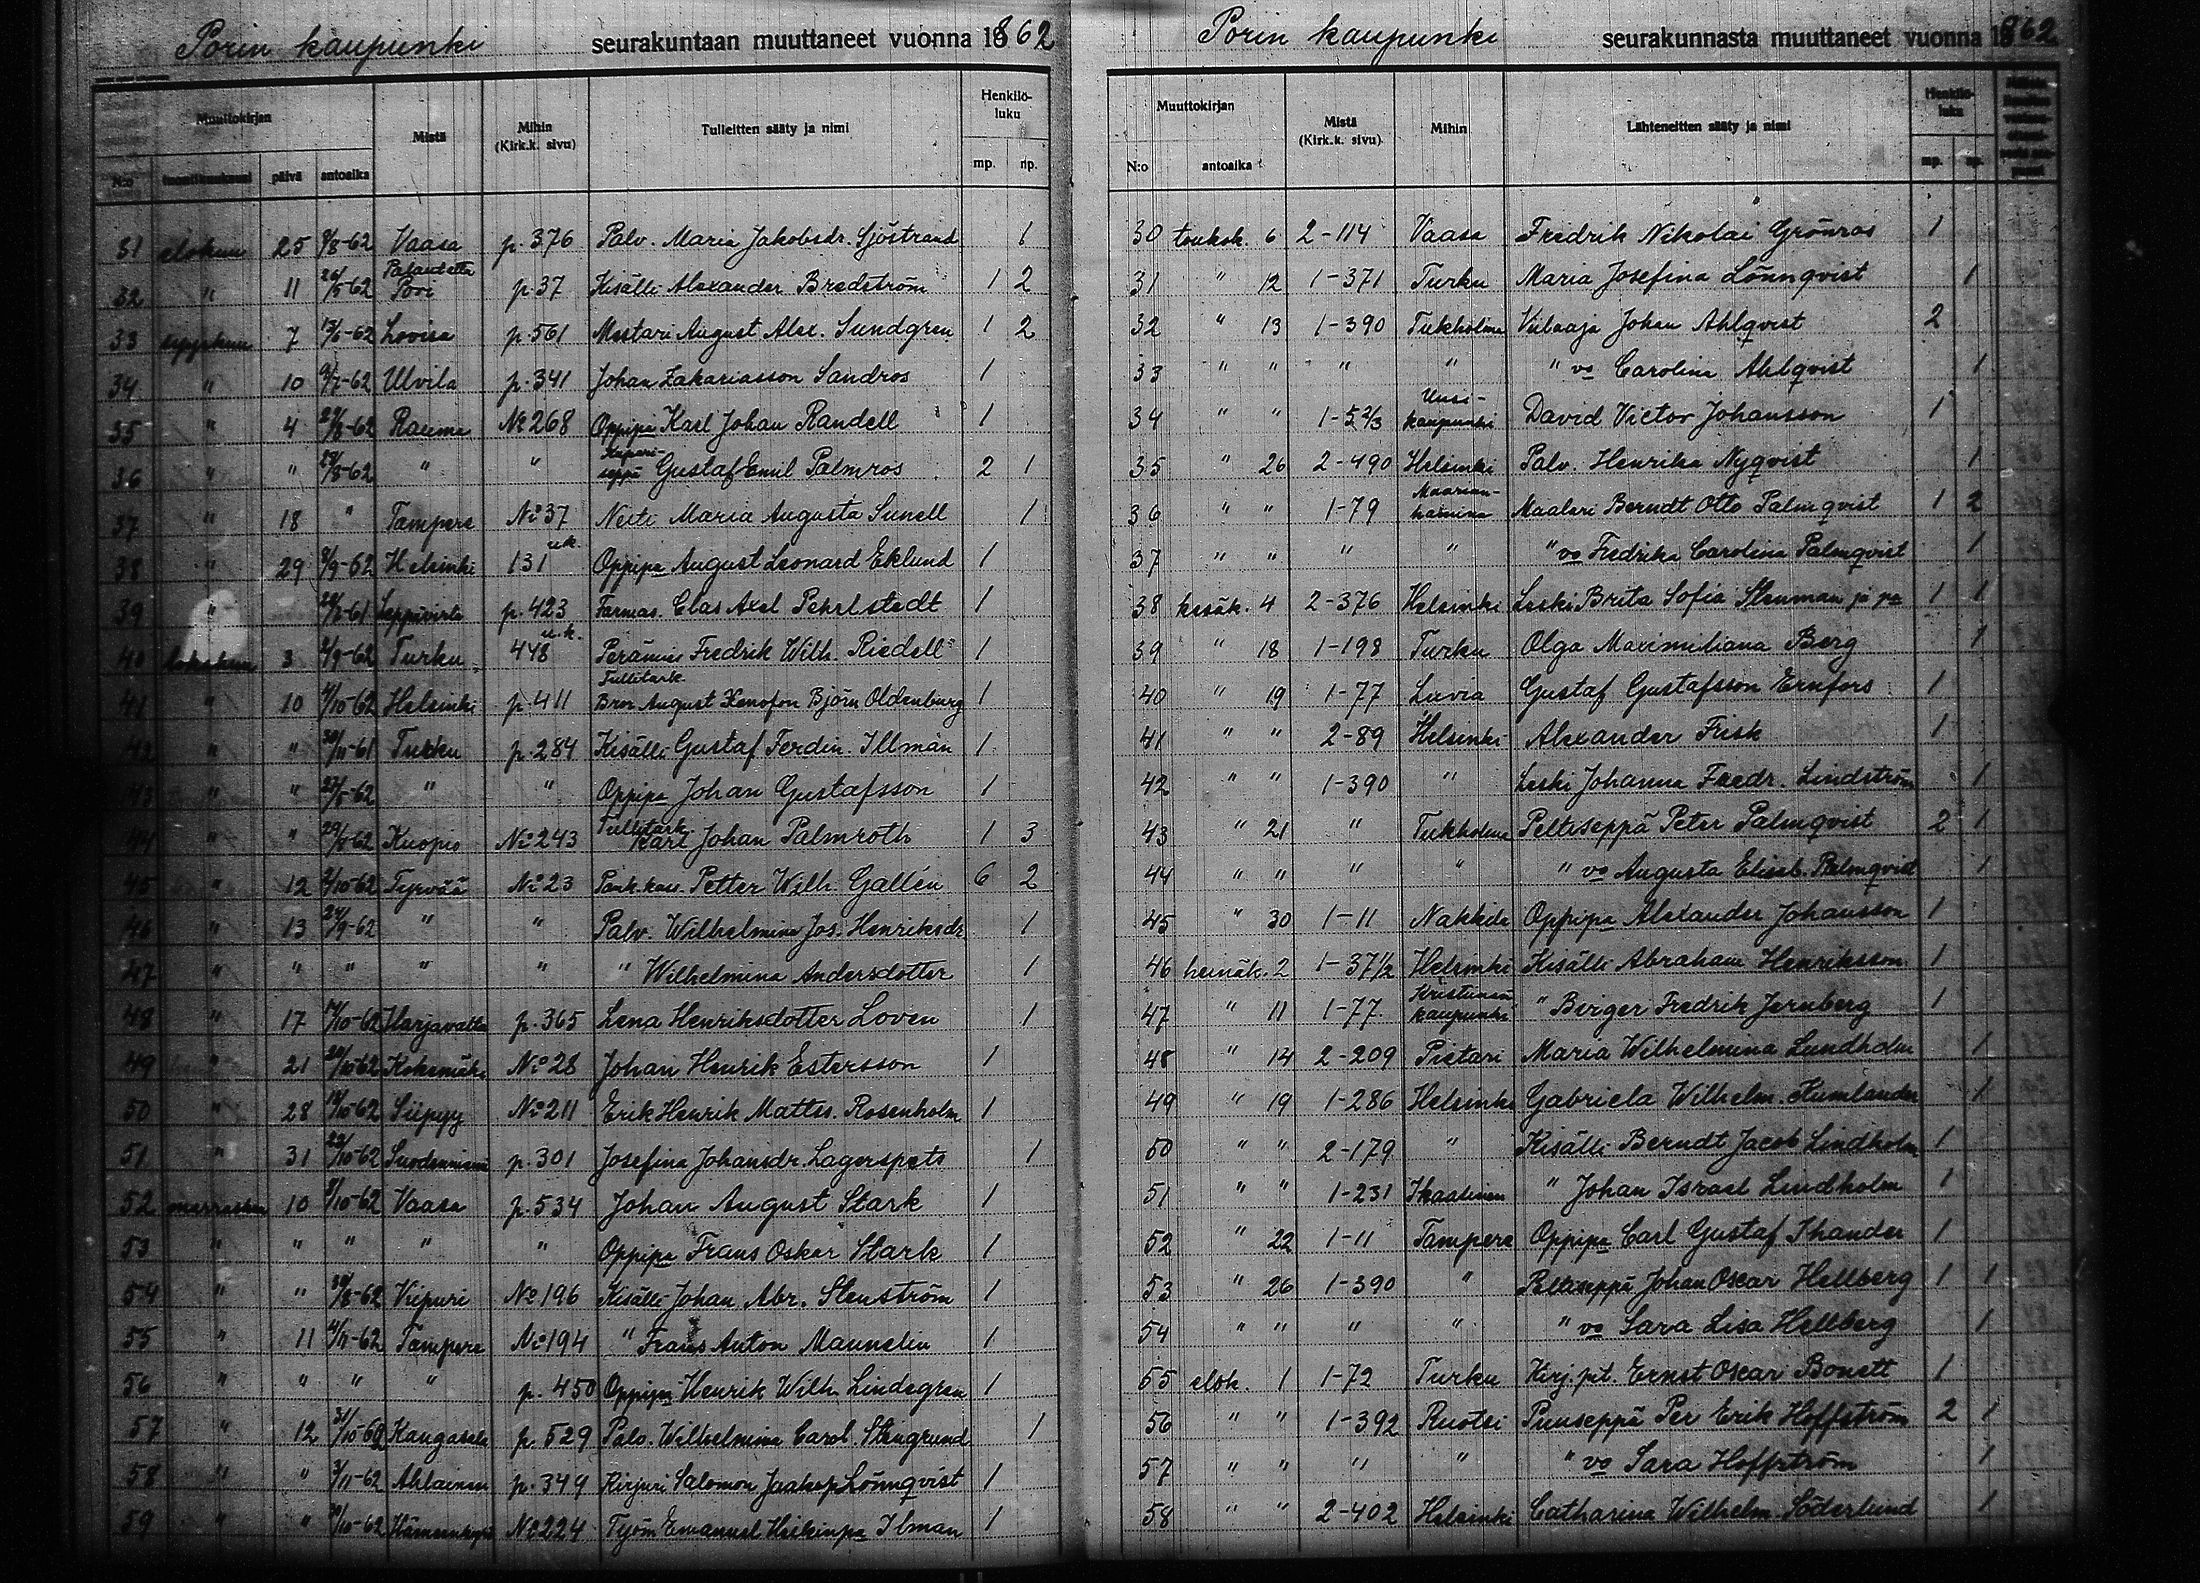 Porin kaupunki seurakuntaan muuttaneet vuonna 1862
Muuttokirjan Mistä Mihin (Kirk.k. sivu) Tulleitten sääty ja nimi Henkilö-luku
N:o päivä antoaika mp. np.
31 elokuu 25 9/8-62 Vaasa p. 376 Palv. Maria Jakobsdr. Sjöstrand 1
32 " 11 26/5-62 Palautettu Pori p. 37 Kisälli Alexander Bredström 1 2
33 syyskuu 7 15/6-62 Lovisa p. 561 Mestari August Alex. Sundgren 1 2
34 " 10 9/7-62 Ulvila p. 341 Johan Zakariasson Sandros 1
35 " 4 Rauma No 268 Oppipa Karl Johan Randell 1
36 " " 29/8-62 " " Kupariseppä Gustaf Emil Palmros 2 1
37 " 18 " Tampere No 37 Neiti Maria Augusta Sunell 1
38 " 29 8/9-62 Helsinki 131 u.k. Oppipa August Leonard Eklund 1
39 " Leppävirta p. 423 Farmas. Clas Axel Pehrlstedt 1
40 lokakuu 3 2/9-62 Turku 448 u.k. Perämies Fredrik Wilh. Riedell 1
41 " 10 4/10-62 Helsinki p. 411 Tullitark. Bror August Xenofon Björn Oldenburg 1
42 " " 30/11-61 Turku p. 284 Kisälli Gustaf Ferdin. Illman 1
43 " " " " Oppipa Johan Gustafsson 1
44 " " Kuopio No 243 Tullitark. Karl Johan Palmroth 1 3
45 " 12 2/10-62 Tyrvää No 23 Pank.kas. Petter Wilh. Gallén 6 2
46 " 13 24/9-62 " " Palv. Wilhelmina Jos. Henriksdr 1
47 " " " " " " Wilhelmina Andersdotter 1
48 " 17 14/10-62 Harjavalta p. 365 Lena Henriksdotter Loven 1
49 " 21 20/10-62 Kokemäki No 28 Johan Henrik Estersson 1
50 " 28 14/10-62 Siipyy No 211 Erik Henrik Matts. Rosenholm 1
51 " 31 22/10-62 Suodenniemi p. 301 Josefina Johansdr. Lagerspets 1
52 marraskuu 10 8/10-62 Vaasa p. 534 Johan August Stark 1
53 " " " " " Oppipa Frans Oskar Stark 1
54 " " 30/8-62 Viipuri No 196 Kisälli Johan Abr. Stenström 1
55 " 11 4/11-62 Tampere No 194 " Frans Anton Mannelin 1
56 " " " " p. 450 Oppipa Henrik Wilh. Lindegren 1
57 " 12 31/10-62 Kangasala p. 529 Palv. Wilhelmina Carol. Stengrund 1
58 " " 3/11-62 Ahlainen p. 349 Kirjuri Salomon Jaakop Lönnqvist 1
59 " " Hämeenkyrö No 224 Työm Emanuel Heikinpa Ilman 1
Porin kaupunki seurakunnasta muuttaneet vuonna 1862
Muuttokirjan Mistä (Kirk.k. sivu) Mihin Lähteneitten sääty ja nimi Henkilö-luku
N:o antoaika mp. np.
30 toukok. 6 2-114 Vaasa Fredrik Nikolai Grönros 1
31 " 12 1-371 Turku Maria Josefina Lönnqvist 1
32 " 13 1-390 Tukholma Viilaaja Johan Ahlqvist 2
33 " " " " " vo Carolina Ahlqvist 1
34 " " 1-52/3 Uusi-kaupunki David Victor Johansson 1
35 " 26 2-490 Helsinki Palv. Henrika Nyqvist 1
36 " " 1-79 Maarian-hamina Maalari Berndt Otto Palmqvist 1 2
37 " " " " " vo Fredrika Carolina Palmqvist 1
38 kesäk. 4 2-376 Helsinki Leski Brita Sofia Stenman ja pa 1 1
39 " 18 1-198 Turku Olga Maximiliana Berg 1
40 " 19 1-77 Luvia Gustaf Gustafsson Ernfors 1
41 " " 2-89 Helsinki Alexander Frisk 1
42 " " 1-390 " Leski Johanna Fredr. Lindström 1
43 " 21 " Tukholma Peltiseppä Peter Palmqvist 2 1
44 " " " " " vo Augusta Elisab. Palmqvist 1
45 " 30 1-11 Nakkila Oppipa Alexander Johansson 1
46 heinäk. 2 1-371/2 Helsinki Kisälli Abraham Henriksson 1
47 " 11 1-77 Kristiinan kaupunki " Birger Fredrik Jernberg 1
48 " 14 2-209 Pietari Maria Wilhelmina Lundholm 1
49 " 19 1-286 Helsinki Gabriela Wilhelm. Kumlander 1
50 " " 2-179 " Kisälli Berndt Jacob Lindholm 1
51 " " 1-231 Ikaalinen " Johan Israel Lindholm 1
52 " 22 1-11 Tampere Oppipa Carl Gustaf Ihander 1
53 " 26 1-390 " Peltiseppä Johan Oscar Hellberg 1 1
54 " " " " " vo Sara Lisa Hellberg 1
55 elok. 1 1-72 Turku Kirj.pit. Ernst Oscar Bonett 1
56 " " 1-392 Ruotsi Puuseppä Per Erik Hoffström 2 1
57 " " " " " vo Sara Hoffström 1
58 " " 2-402 Helsinki Catharina Wilhelm. Söderlund 1